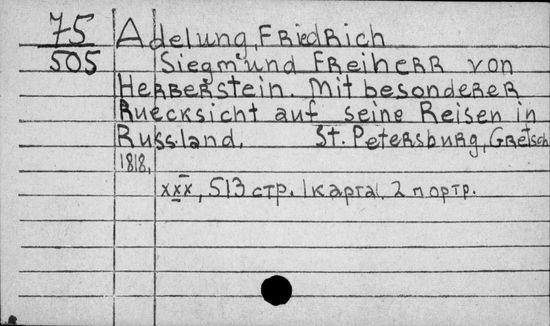 75
505
Adelung, Friedrich
Siegmund Freiherr von
Herberstein. Mit besonderer
Ruecksicht auf seine Reisen in
Russland. St. Petersburg, Gretsch
1818.
xxx, 513 стр. 1 карта. 2 портр.